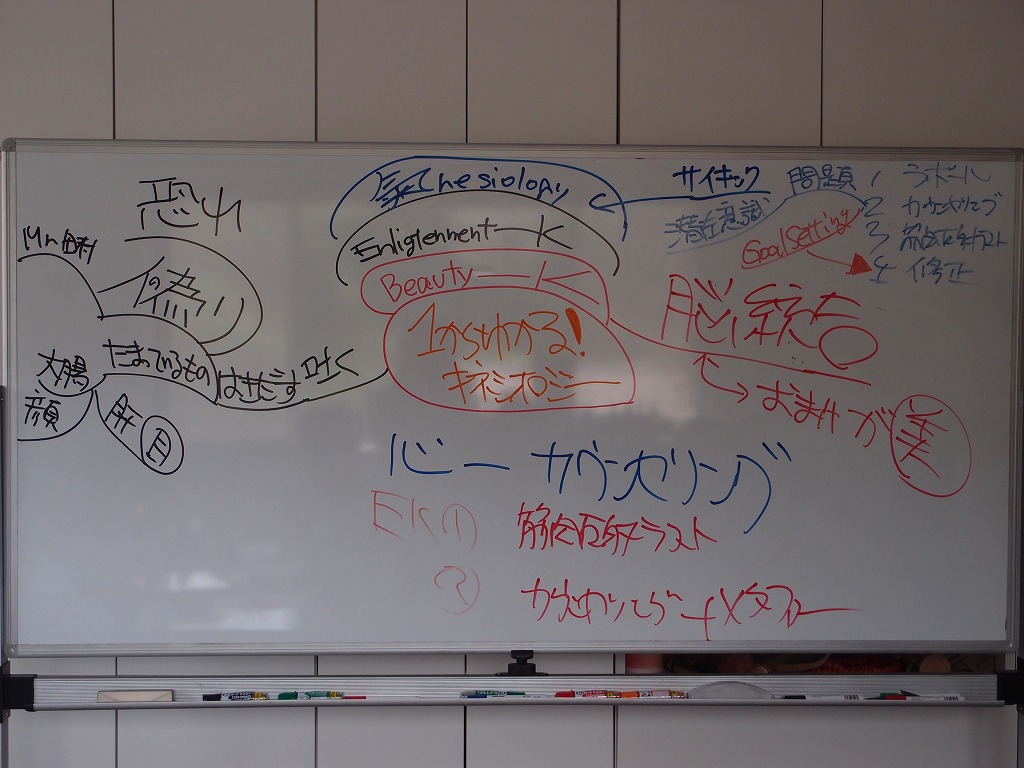 恐れ
偽り
たまっているもの
はきだす 吐く
大腸
顔
肝 目
氣inesiology
Enligtenment ー K
Beauty ー K
1からわかる!
キネシオロジー
サイキック
潜在意識
問題
Goal Setting
1 ラポール
2 カウンセリング
3 筋肉反射テスト
4 修正
脳 統合
が 美
心 ー カウンセリング
EK ①
筋肉反射テスト
カウンセリング + メタファー